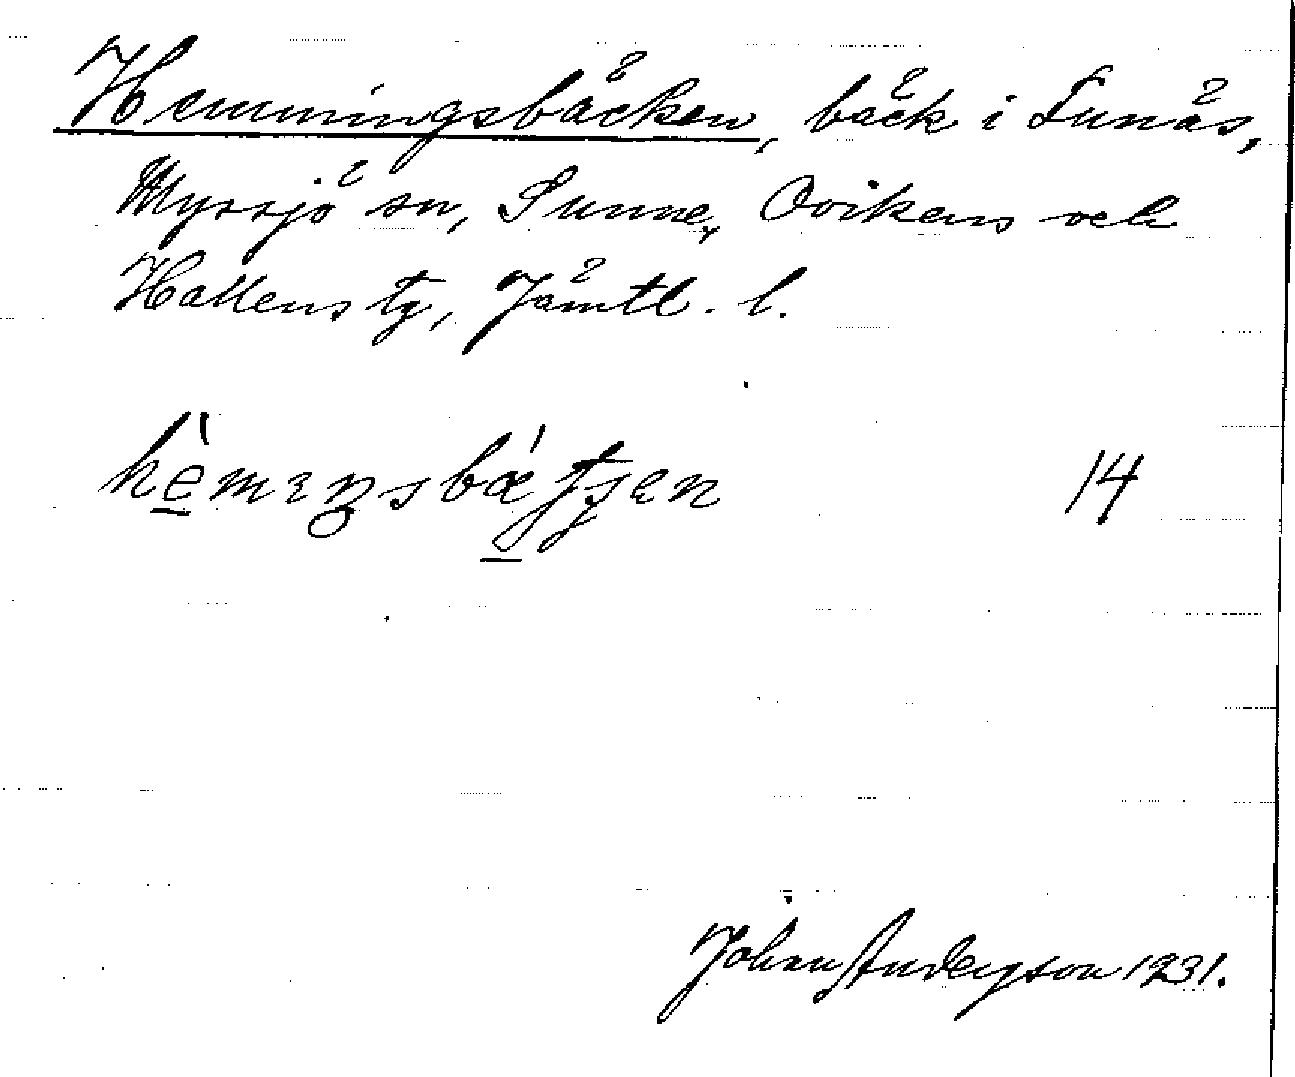 Hemmingsbäcken, bäck i Lunäs,
Myssjö sn, Sunne, Ovikens och
Hallens tg, Jämtl. l.
14
Johan Anderson 1931.